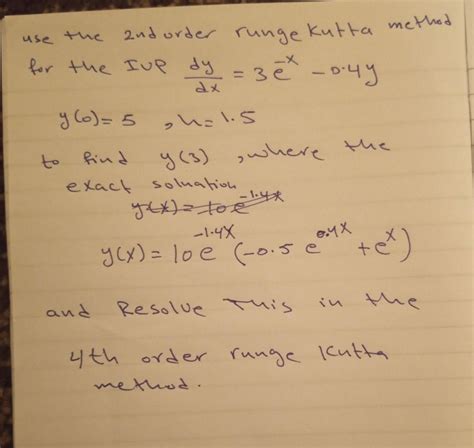 use the 2nd order runge Kutta method
for the IVP dy/dx = 3e^-x - 0.4y
y(0)=5 , h=1.5
to find y(3) , where the
exact soluation
y(x) = 10e^-1.4x
y(x) = 10e^-1.4x (-0.5 e^0.4x + e^x)
and Resolve This in the
4th order runge Kutta
method.